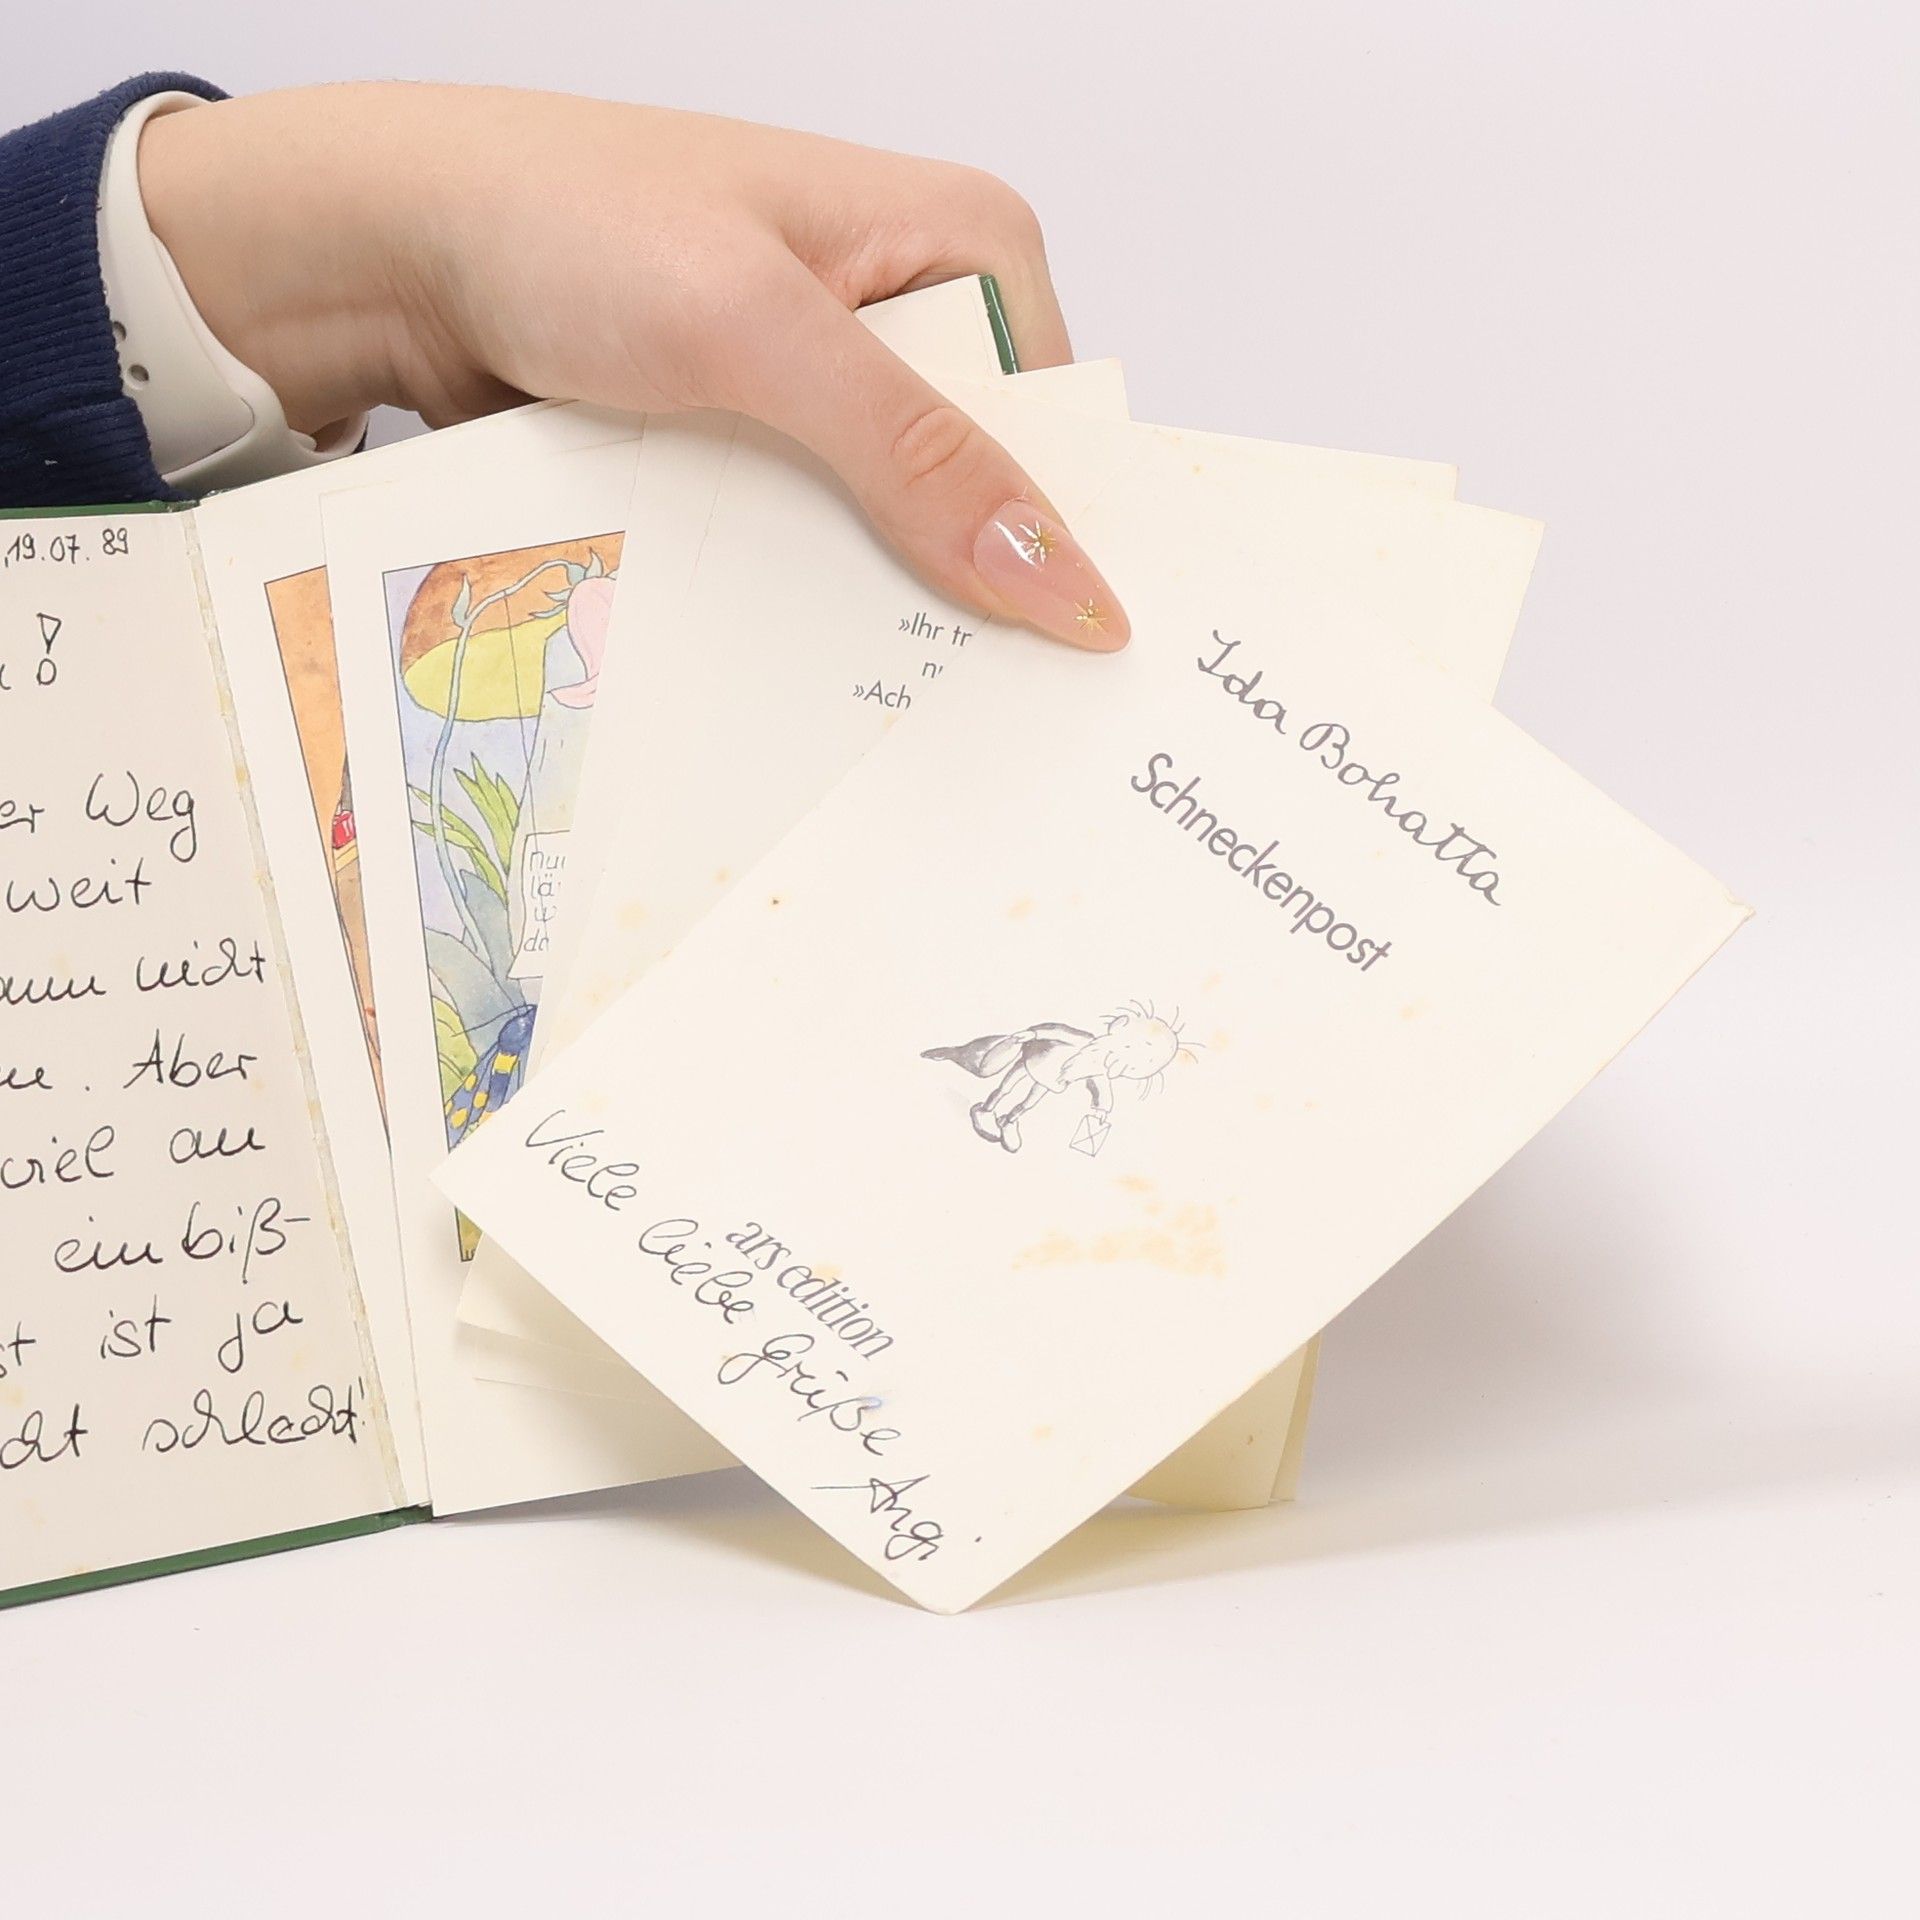 19.07.89
!
er Weg
weit
nicht
. Aber
viel an
ein biß-
ist ja
schlecht!
»Ihr tr
n'
»Ach
Ida Bohatta
Schneckenpost
ars edition
Viele liebe Grüße
Angi